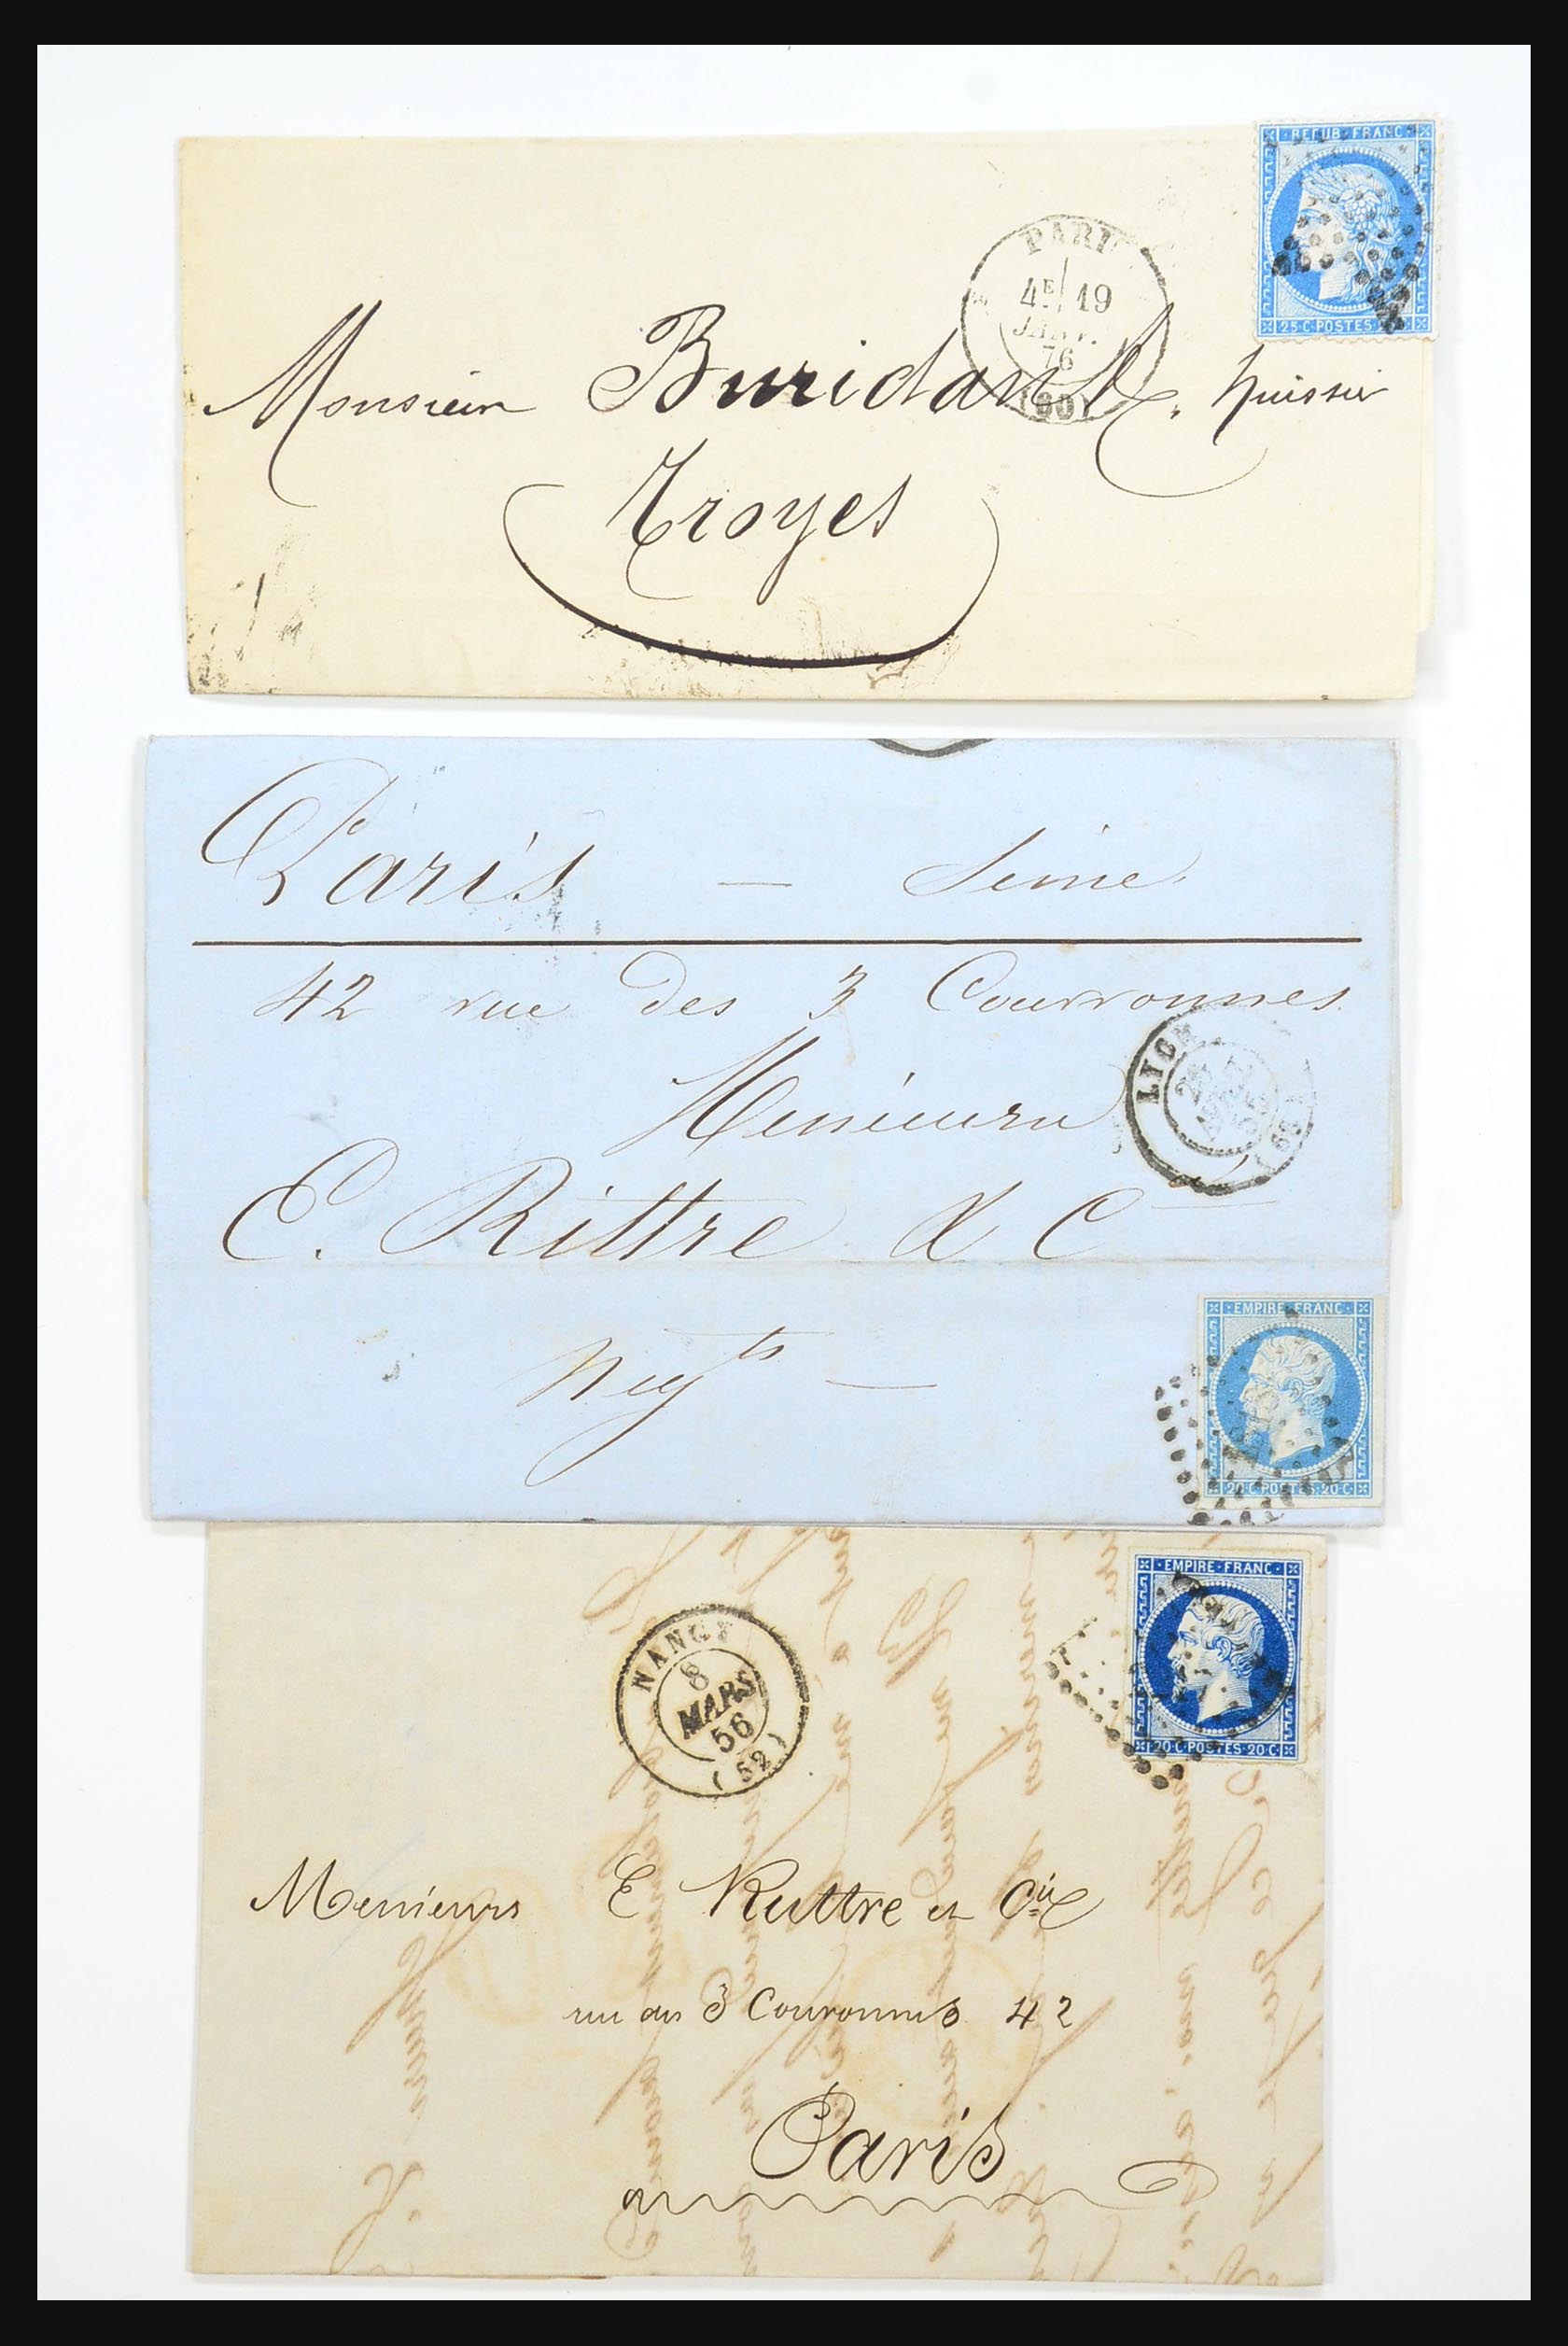 REPUB·FRANC
PARI
4E 19
JANV.
76
(60)
25·C·POSTES
Monsieur Buridan, huissier
Troyes
Paris — Seine
42 rue des 3 Couronnes
LYON
(68)
Messieurs
E. Rittre & C
EMPIRE·FRANC
Negts —
20·C·POSTES·20·C
EMPIRE·FRANC
NANCY
8
MARS
56
(52)
20·C·POSTES·20·C
Messieurs E Ruttre et Cie
rue des 3 Couronnes 42
Paris